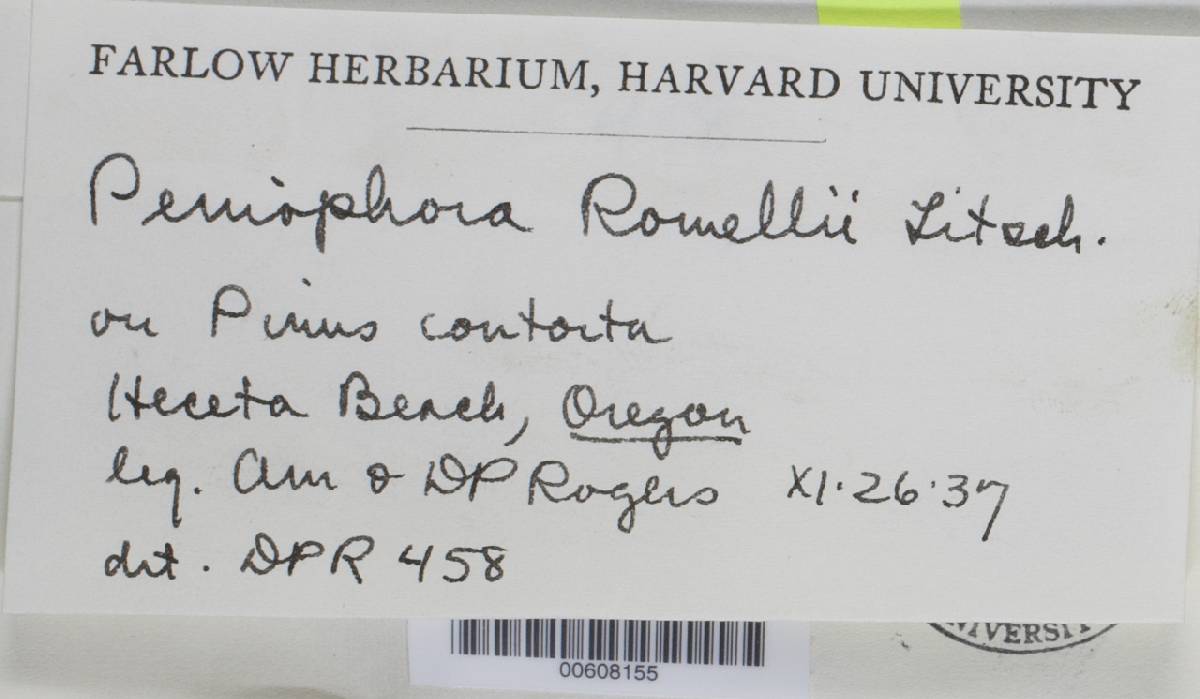 FARLOW HERBARIUM, HARVARD UNIVERSITY
Peniophora Romellii Litsch.
on Pinus contorta
Heceta Beach, Oregon
leg. AM & DP Rogers XI·26·37
det. DPR 458
00608155